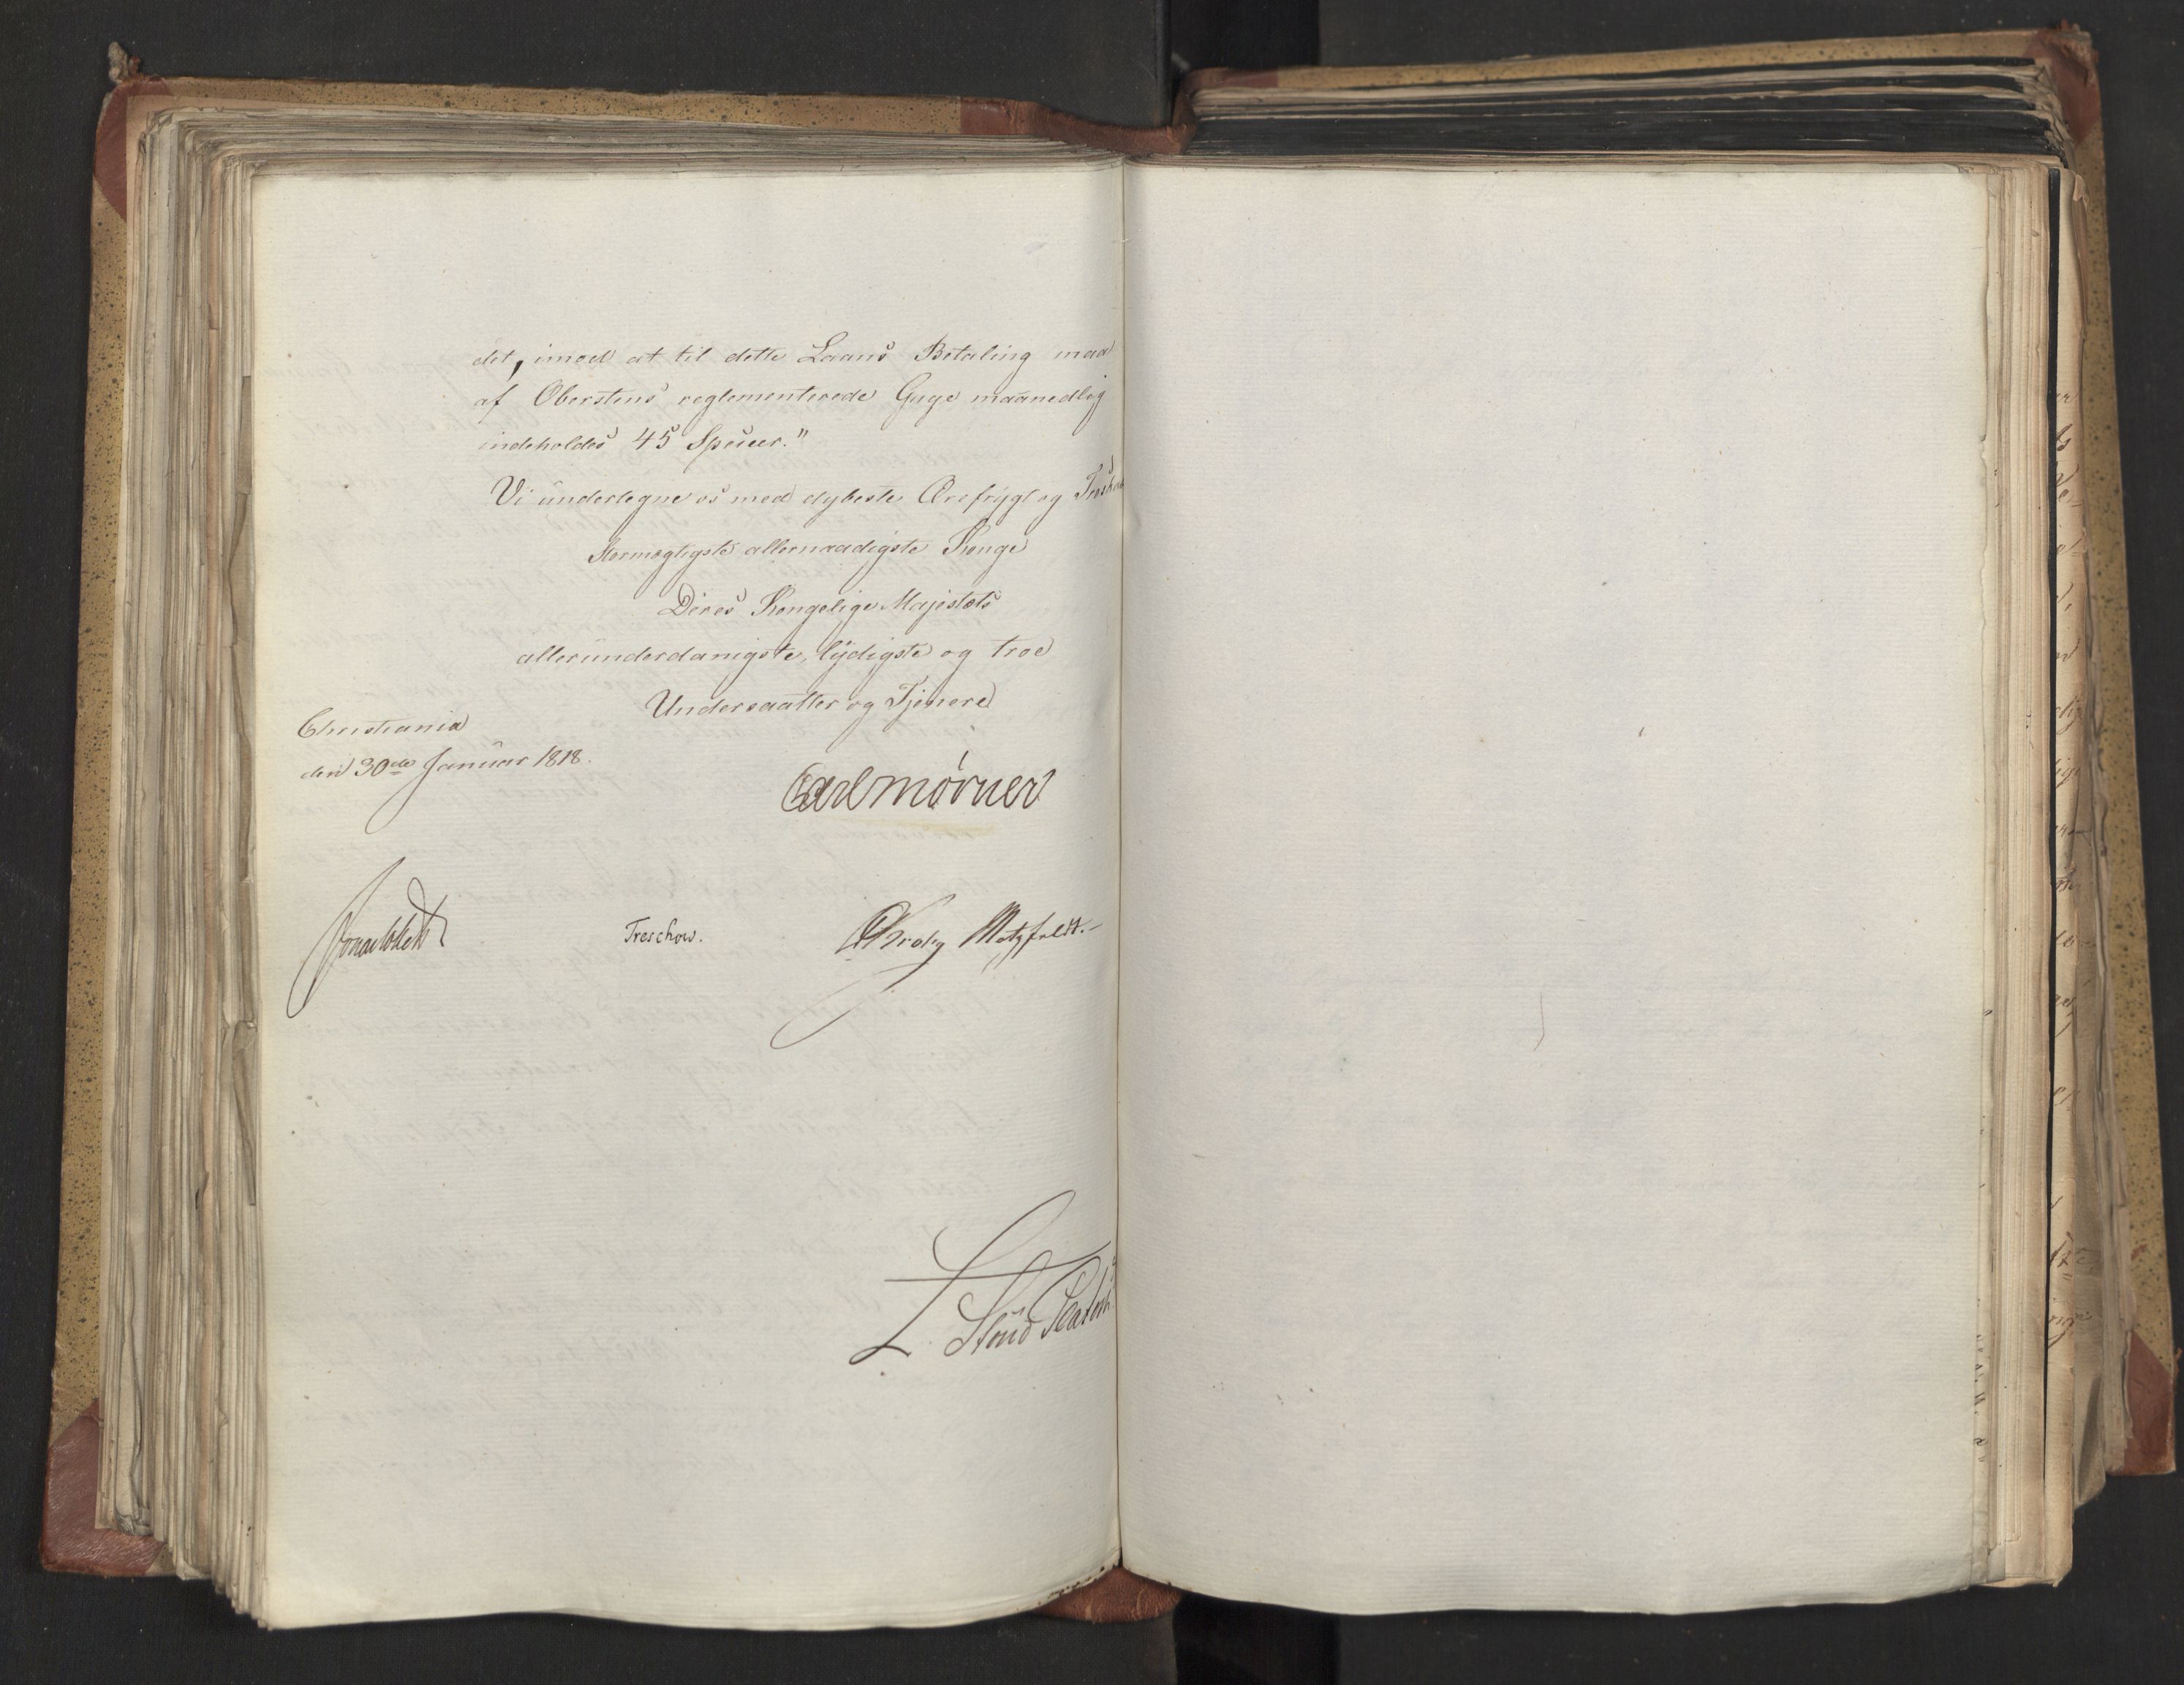 det, imod at til dette Laans Betaling maa
af Oberstens reglementerede Gage maanedlig
indeholdes 45 Species."
Vi undertegne os med dybeste Ærefrygt og
Stormægtigste allernaadigste Konge
Deres Kongelige Majestæts
allerunderdanigste, lydigste og troe
Undersaatter og Tjenere
Christiania
den 30de Januar 1818.
Carl Mörner
Jonas Collett
Treschow.
Krog Motzfeldt.
L. Stoud Platou